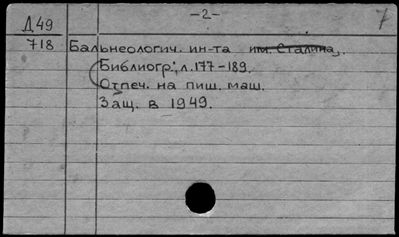 -2-
7
Д49
718 Бальнеологич. ин-та им. Сталина.
Библиогр.: л. 177-189.
Отпеч. на пиш. маш.
Защ. в 1949.